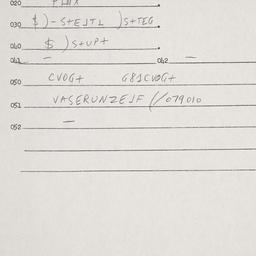 020
030 $)-S+EJTL )S+TEG
040 $ )S+UP+
041 — 042 —
050 CVOG+ G81CVOG+
051 VASERUNZEJF (/079010
052 —